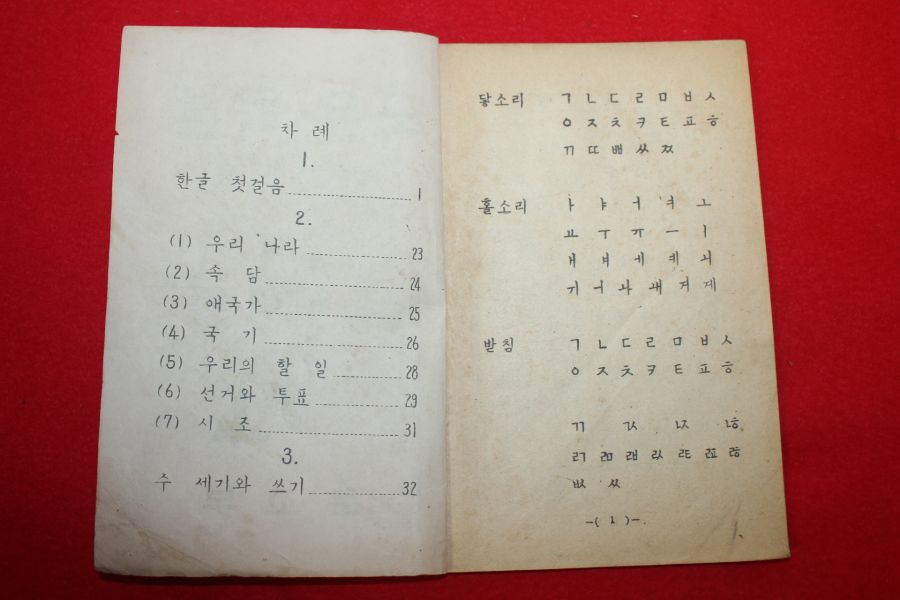 차 례
1.
한글 첫걸음 1
2.
(1) 우리 나라 23
(2) 속 담 24
(3) 애국가 25
(4) 국 기 26
(5) 우리의 할 일 28
(6) 선거와 투표 29
(7) 시 조 31
3.
수 세기와 쓰기 32
닿소리 ㄱ ㄴ ㄷ ㄹ ㅁ ㅂ ㅅ
ㅇ ㅈ ㅊ ㅋ ㅌ ㅍ ㅎ
ㄲ ㄸ ㅃ ㅆ ㅉ
홀소리 ㅏ ㅑ ㅓ ㅕ ㅗ
ㅛ ㅜ ㅠ ㅡ ㅣ
ㅐ ㅒ ㅔ ㅖ ㅚ
ㅟ ㅢ ㅘ ㅙ ㅝ ㅞ
받침 ㄱ ㄴ ㄷ ㄹ ㅁ ㅂ ㅅ
ㅇ ㅈ ㅊ ㅋ ㅌ ㅍ ㅎ
ㄲ ㄳ ㄵ ㄶ
ㄺ ㄻ ㄼ ㄽ ㄾ ㄿ ㅀ
ㅄ ㅆ
-( 1 )-